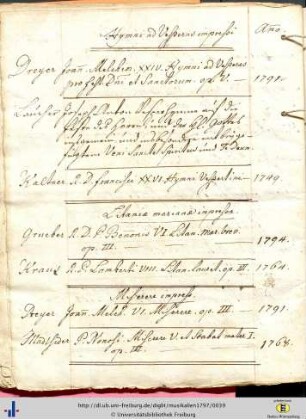 Hymni ad Vesperas impressi
Año.
Dreyer Joan̄ Melchior. XXIV. Hymni ad Vesperas
pro fest. Dni et Sanctorum. op. V. 1791.
Joseph Anton Vesperhymnen auf die
Feste des Herrn und der
insgemein und
Veni Sancte Spiritus und Te Deum
Kaltner R. D. Francisci XXVI. Hymni Vespertini 1749.
Litaniæ marianæ impressæ.
Grueber R. D. P. Bennonis VI Litan. mar. brev.
op. III. 1794.
Kraus R. D. Lamberti VIII. Litan. lauret. op. III. 1764.
Miserere impress.
Dreyer Joan̄ Melch. VI. Miserere. op. III. 1791.
P. Nonosi. Miserere V. et Stabat mater I.
op. III. 1768.
http://dl.ub.uni-freiburg.de/diglit/musikalien1797/0039
© Universitätsbibliothek Freiburg